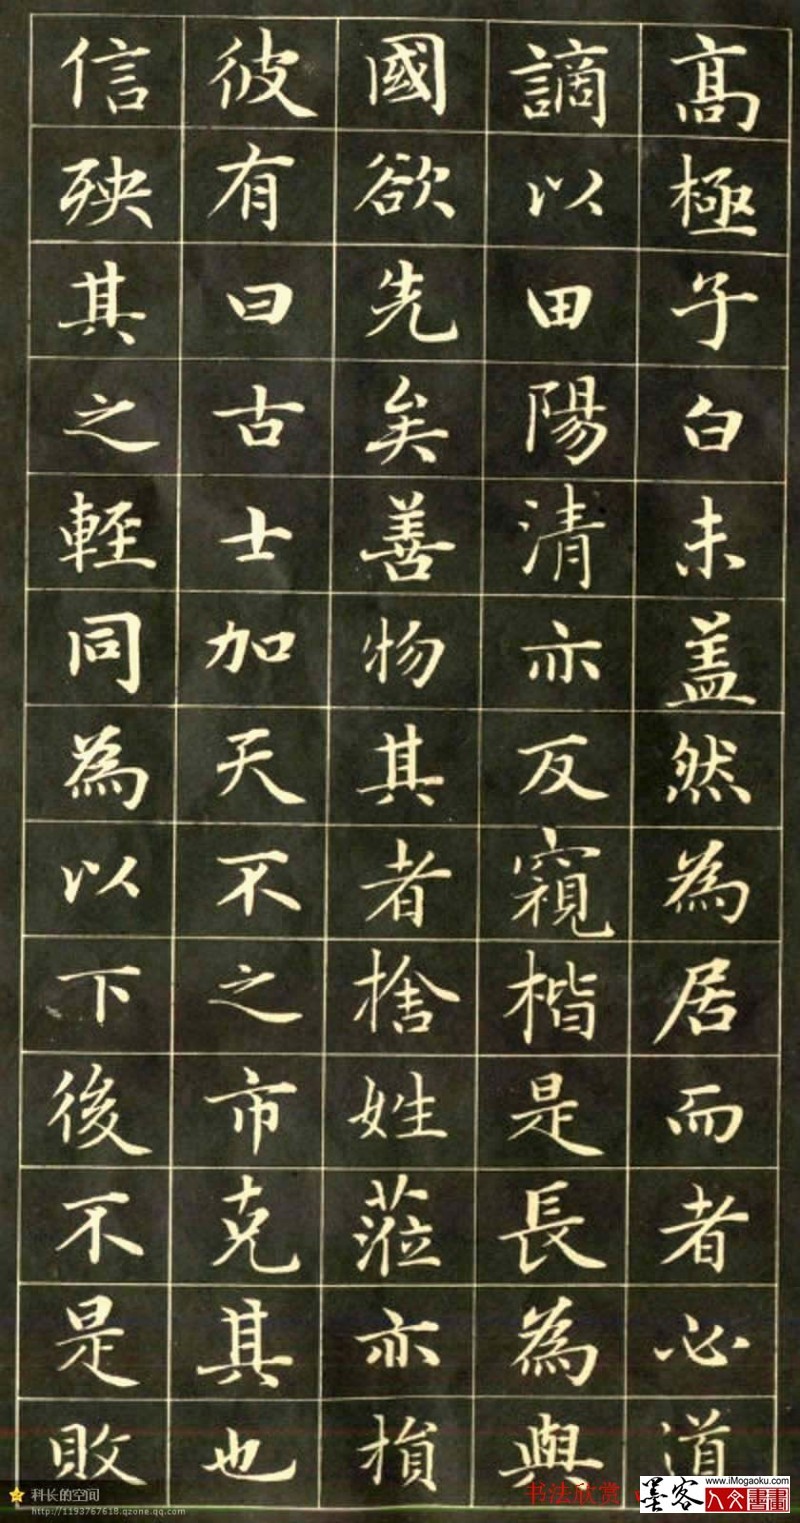 高極子白未盖然為居而者心道
謫以田陽清亦反窺楷是長為與
國欲先矣善物其者捨姓蒞亦損
彼有曰古士加天不之市克其也
信殃其之輕同為以下後不是敗
科长的空间
http://1193767618.qzone.qq.com
书法欣赏
www.iMogaoku.com
墨客
人文書畫